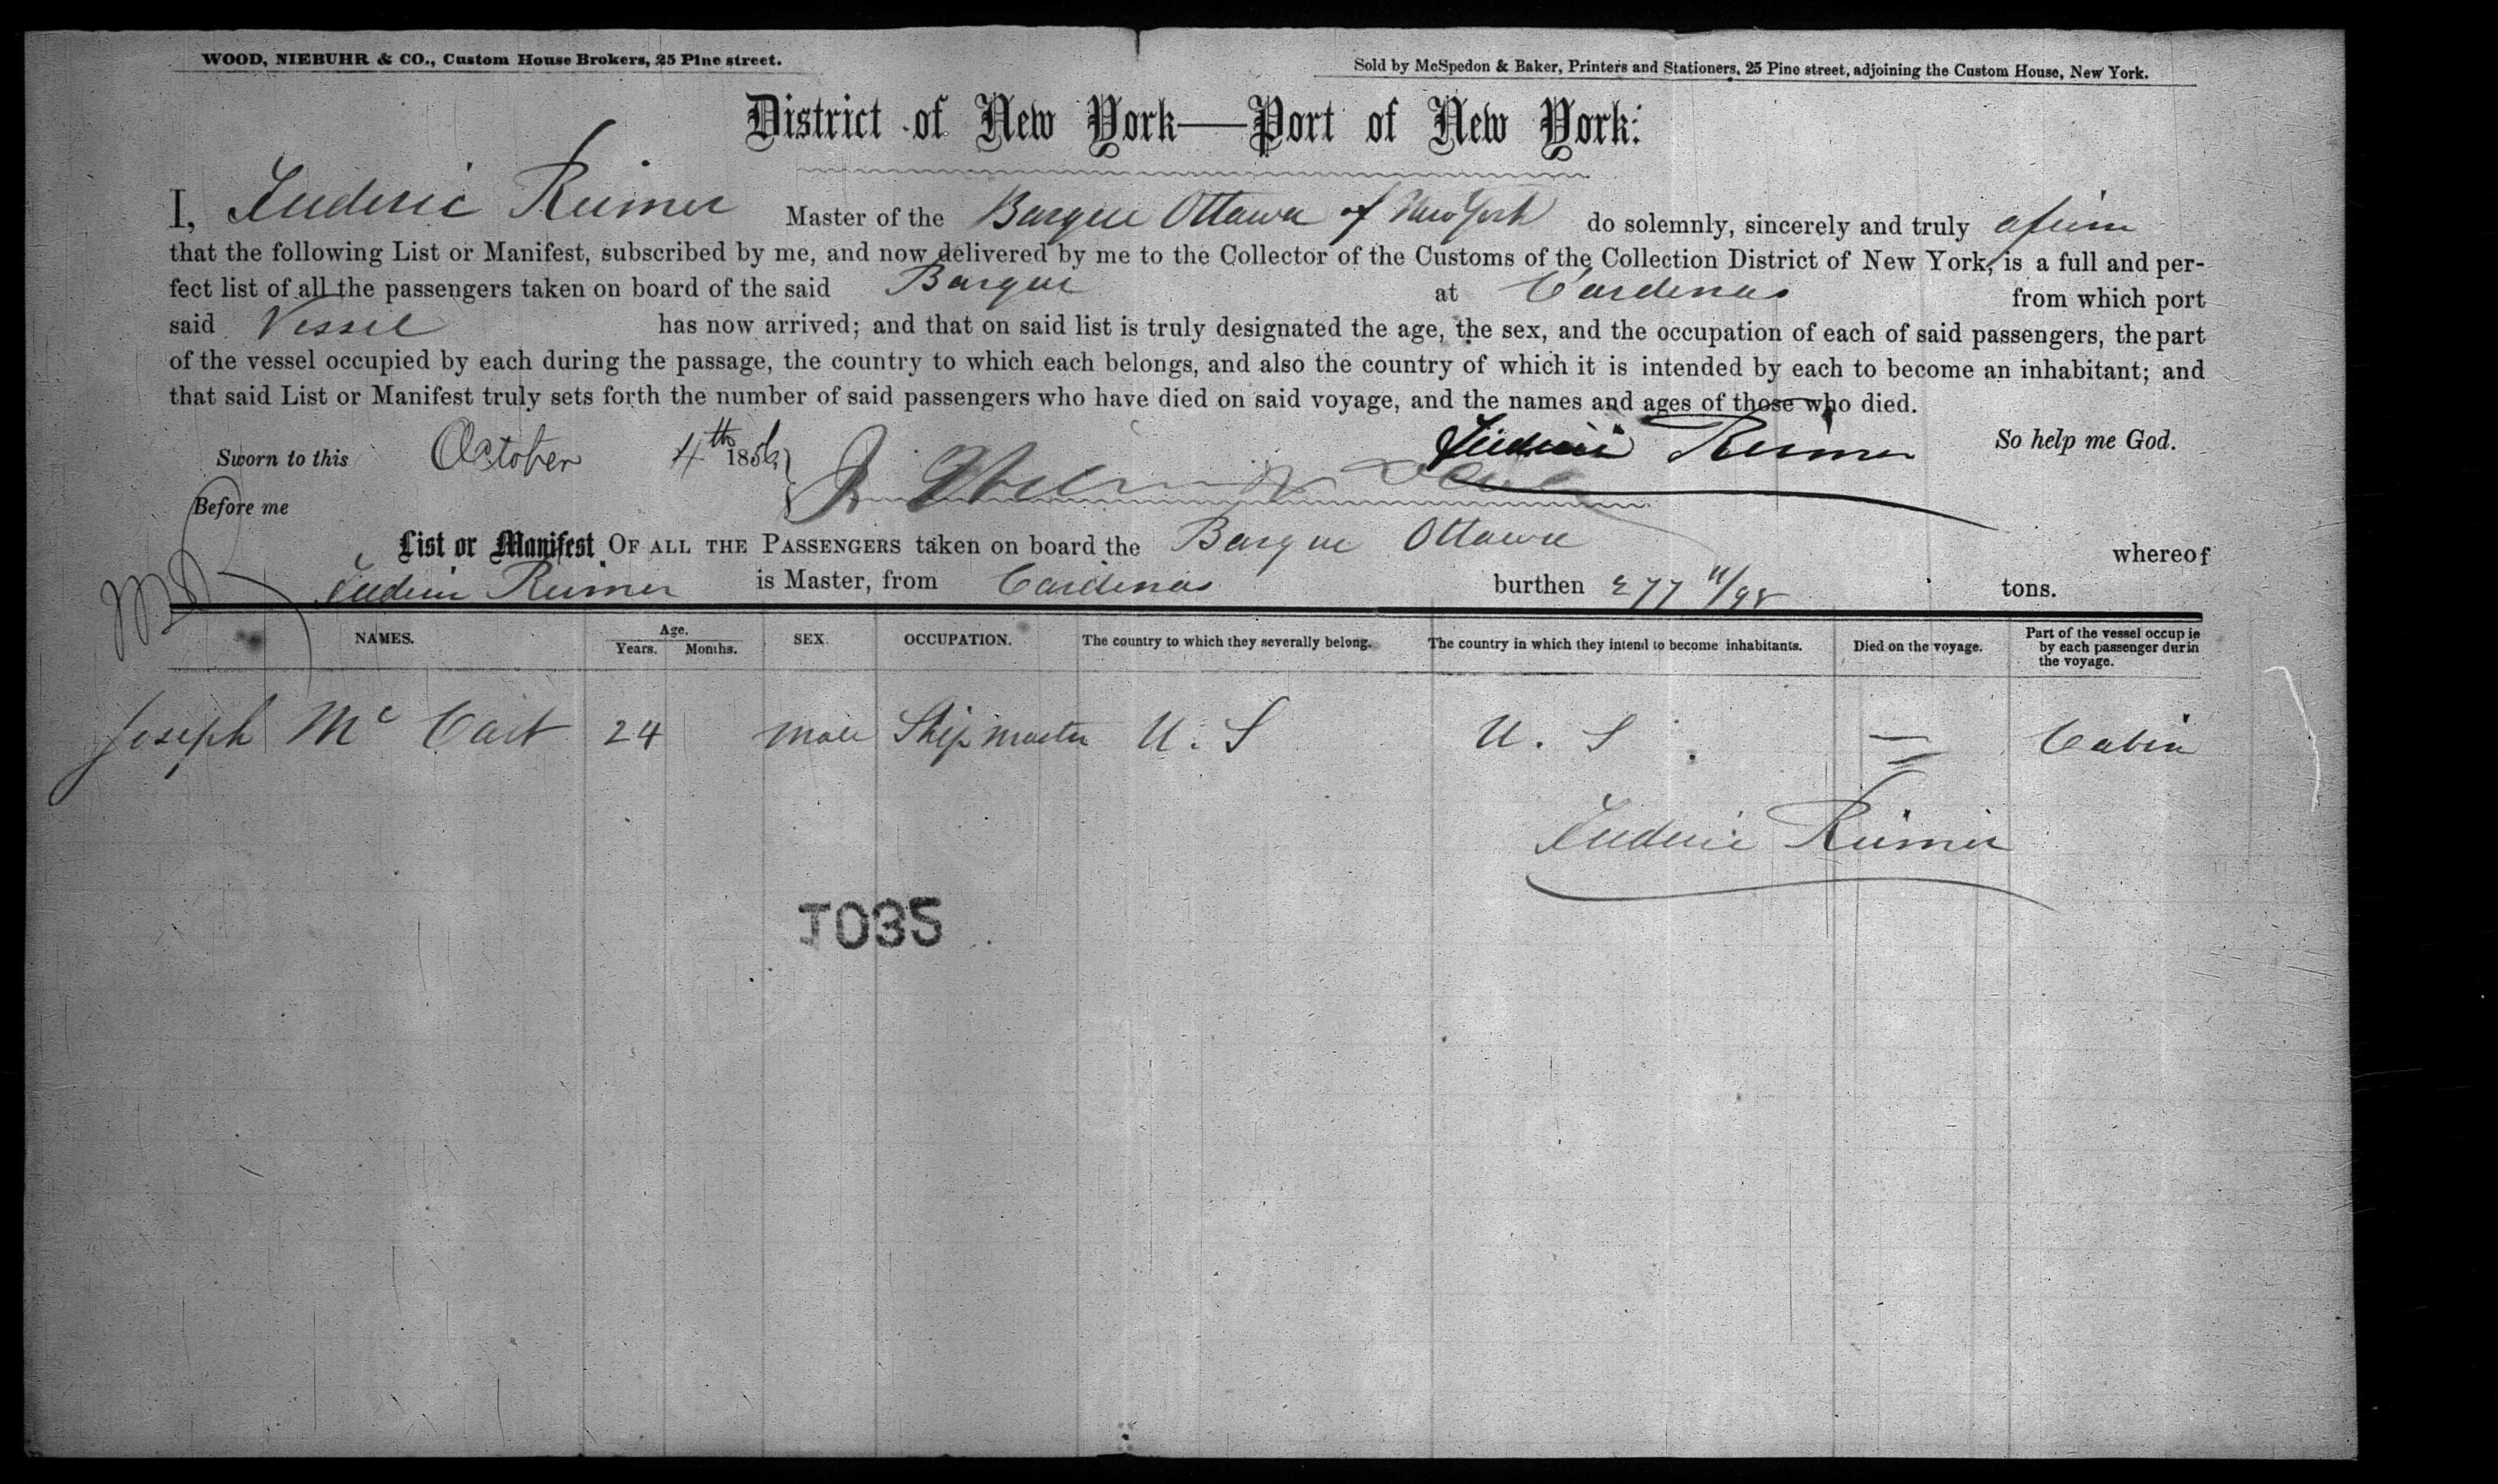 WOOD, NIEBUHR & CO., Custom House Brokers, 25 Pine street.
Sold by McSpedon & Baker, Printers and Stationers, 25 Pine street, adjoining the Custom House, New York.
District of New York—Port of New York:
I, Frederic Reimer Master of the Barque Ottawa of New York do solemnly, sincerely and truly afirm
that the following List or Manifest, subscribed by me, and now delivered by me to the Collector of the Customs of the Collection District of New York, is a full and per-
fect list of all the passengers taken on board of the said Barque at Cardenas from which port
said Vessel has now arrived; and that on said list is truly designated the age, the sex, and the occupation of each of said passengers, the part
of the vessel occupied by each during the passage, the country to which each belongs, and also the country of which it is intended by each to become an inhabitant; and
that said List or Manifest truly sets forth the number of said passengers who have died on said voyage, and the names and ages of those who died.
Sworn to this October 4th 1856 Frederic Reimer So help me God.
Before me
List or Manifest OF ALL THE PASSENGERS taken on board the Barque Ottawa whereof
Frederic Reimer is Master, from Cardenas burthen 277 tons.
NAMES. Age. Years. Months. SEX. OCCUPATION. The country to which they severally belong. The country in which they intend to become inhabitants. Died on the voyage. Part of the vessel occupie by each passenger durin the voyage.
Joseph Mc Cart 24 Male Ship master U. S U. S — Cabin
Frederic Reimer
1035